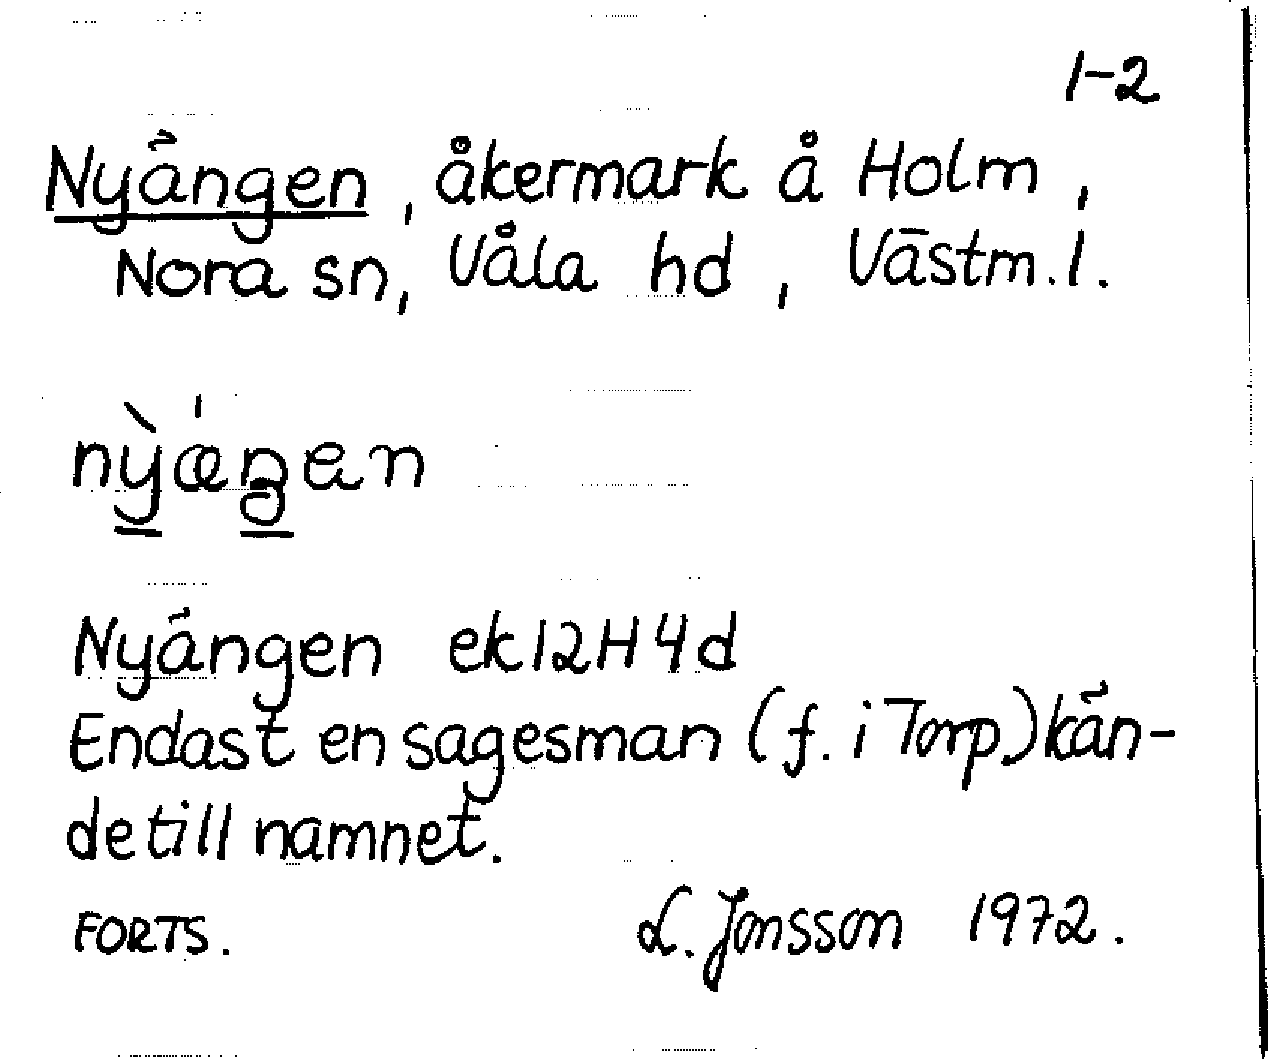 1-2
Nyängen, åkermark å Holm,
Nora sn, Våla hd, Västm.l.
nỳǽŋen
Nyängen ek 12H4d
Endast en sagesman (f. i Torp) kän-
de till namnet.
FORTS. L. Jonsson 1972.